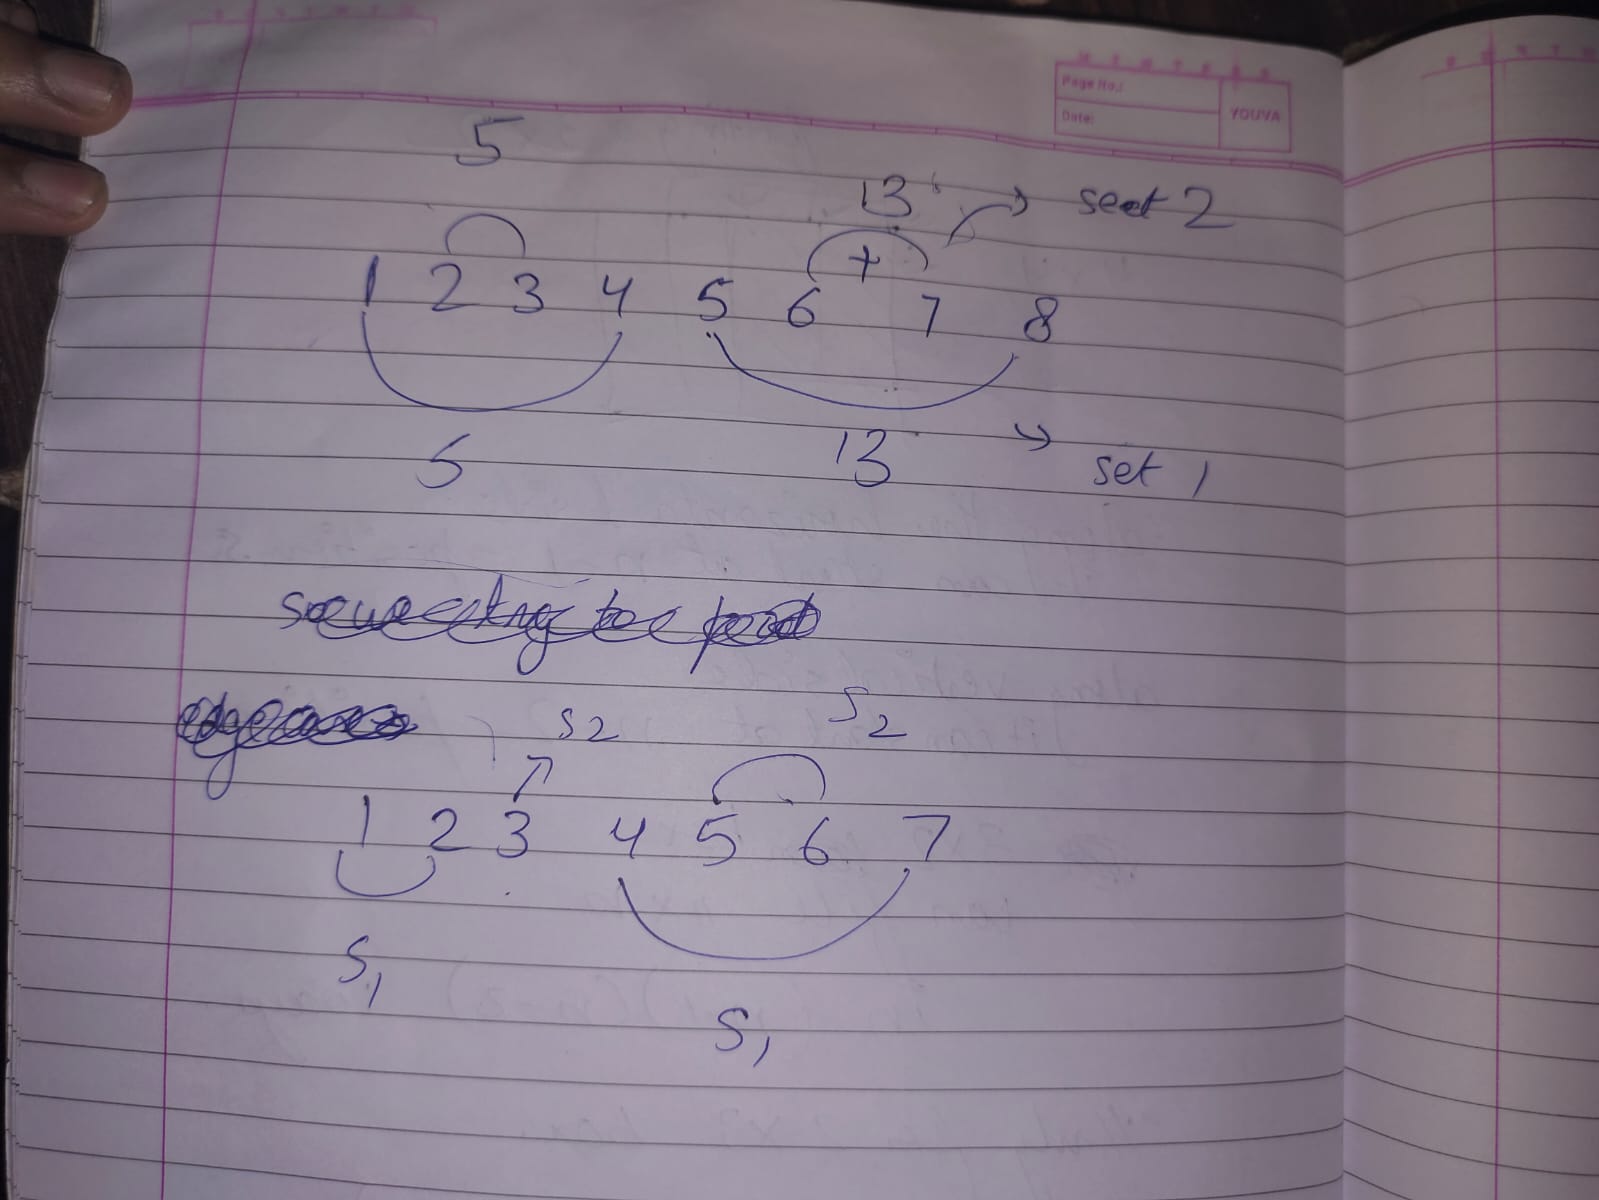 Page No.:
Date:
YOUVA
5
13 → seet 2
+
1 2 3 4 5 6 7 8
5 13 → set 1
S2 S2
1 2 3 4 5 6 7
S1
S1